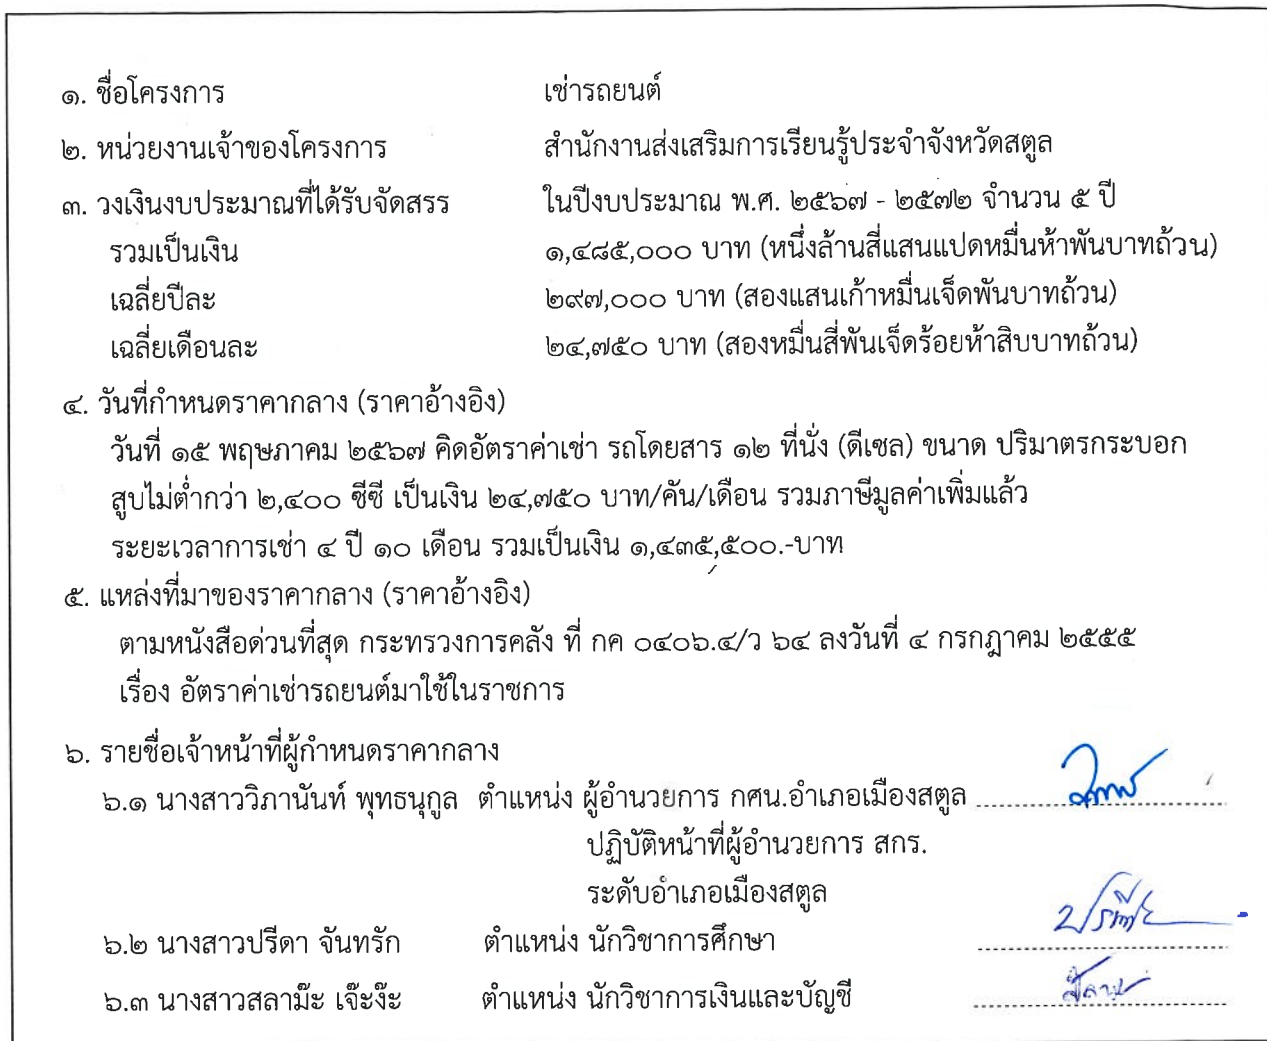 ๑. ชื่อโครงการ เช่ารถยนต์
๒. หน่วยงานเจ้าของโครงการ สำนักงานส่งเสริมการเรียนรู้ประจำจังหวัดสตูล
๓. วงเงินงบประมาณที่ได้รับจัดสรร ในปีงบประมาณ พ.ศ. ๒๕๖๗ - ๒๕๗๒ จำนวน ๕ ปี
รวมเป็นเงิน ๑,๔๘๕,๐๐๐ บาท (หนึ่งล้านสี่แสนแปดหมื่นห้าพันบาทถ้วน)
เฉลี่ยปีละ ๒๙๗,๐๐๐ บาท (สองแสนเก้าหมื่นเจ็ดพันบาทถ้วน)
เฉลี่ยเดือนละ ๒๔,๗๕๐ บาท (สองหมื่นสี่พันเจ็ดร้อยห้าสิบบาทถ้วน)
๔. วันที่กำหนดราคากลาง (ราคาอ้างอิง)
วันที่ ๑๕ พฤษภาคม ๒๕๖๗ คิดอัตราค่าเช่า รถโดยสาร ๑๒ ที่นั่ง (ดีเซล) ขนาด ปริมาตรกระบอก
สูบไม่ต่ำกว่า ๒,๔๐๐ ซีซี เป็นเงิน ๒๔,๗๕๐ บาท/คัน/เดือน รวมภาษีมูลค่าเพิ่มแล้ว
ระยะเวลาการเช่า ๔ ปี ๑๐ เดือน รวมเป็นเงิน ๑,๔๓๕,๕๐๐.-บาท
๕. แหล่งที่มาของราคากลาง (ราคาอ้างอิง)
ตามหนังสือด่วนที่สุด กระทรวงการคลัง ที่ กค ๐๔๐๖.๔/ว ๖๔ ลงวันที่ ๔ กรกฎาคม ๒๕๕๕
เรื่อง อัตราค่าเช่ารถยนต์มาใช้ในราชการ
๖. รายชื่อเจ้าหน้าที่ผู้กำหนดราคากลาง
๖.๑ นางสาววิภานันท์ พุทธนุกูล ตำแหน่ง ผู้อำนวยการ กศน.อำเภอเมืองสตูล
ปฏิบัติหน้าที่ผู้อำนวยการ สกร.
ระดับอำเภอเมืองสตูล
๖.๒ นางสาวปรีดา จันทรัก ตำแหน่ง นักวิชาการศึกษา
๖.๓ นางสาวสลาม๊ะ เจ๊ะง๊ะ ตำแหน่ง นักวิชาการเงินและบัญชี